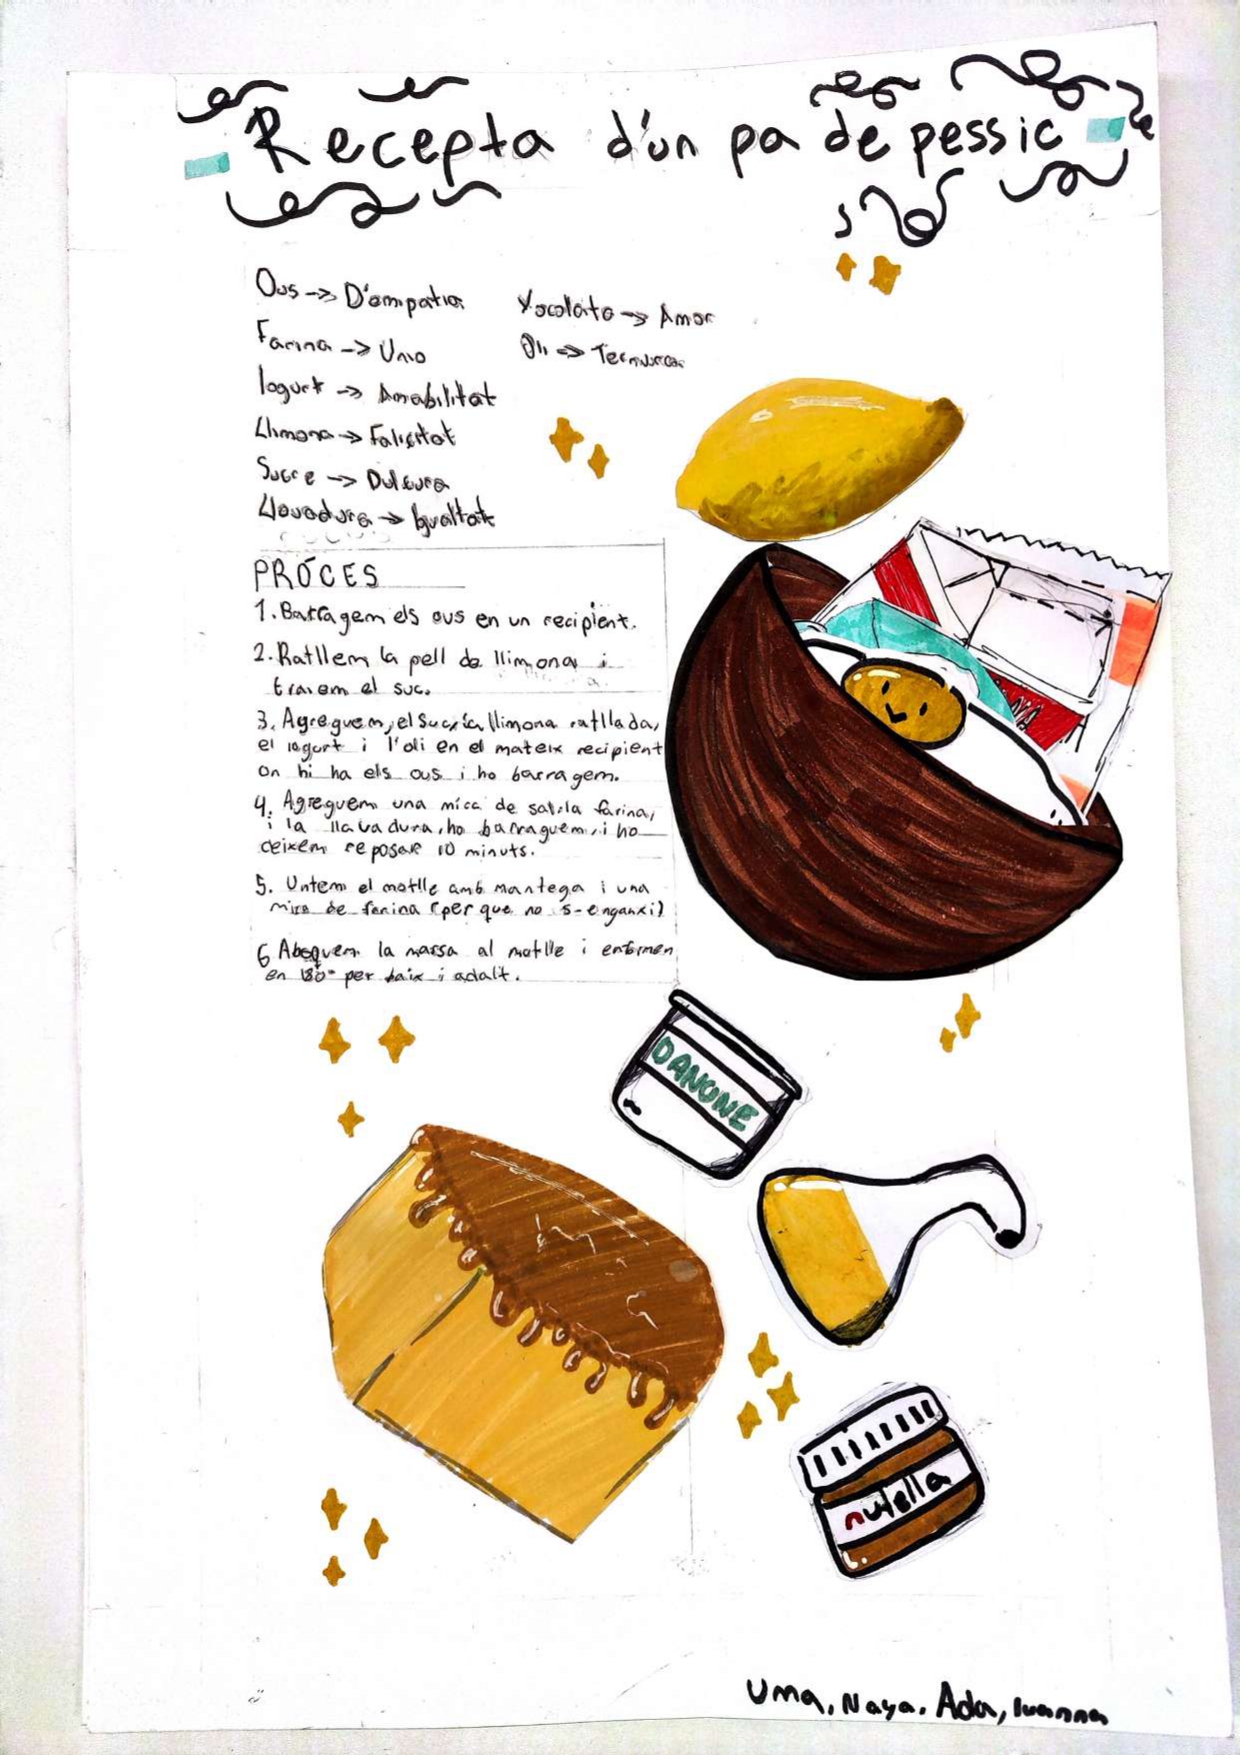 Recepta d'un pa de pessic
Ous -> D'empatia
Farina -> Unio
Iogurt -> Amabilitat
Llimona -> Falicitat
Sucre -> Dulsura
Llavadura -> Igualtat
Xocolata -> Amor
Oli -> Ternura
PRÓCES
1. Barragem els ous en un recipient.
2. Ratllem la pell de llimona i
traiem el suc.
3. Agreguem, el suc, la llimona ratllada,
el iogurt i l'oli en el mateix recipient
on hi ha els ous i ho barragem.
4. Agreguem una mica de sal, la farina,
i la llavadura, ho barraguem, i ho
deixem reposar 10 minuts.
5. Untem el motlle amb mantega i una
mica de farina (per que no s-enganxi)
6 Aboquem la massa al motlle i enfornem
en 180° per baix i adalt.
DANONE
nutella
Uma, Naya, Ada, Ivanna